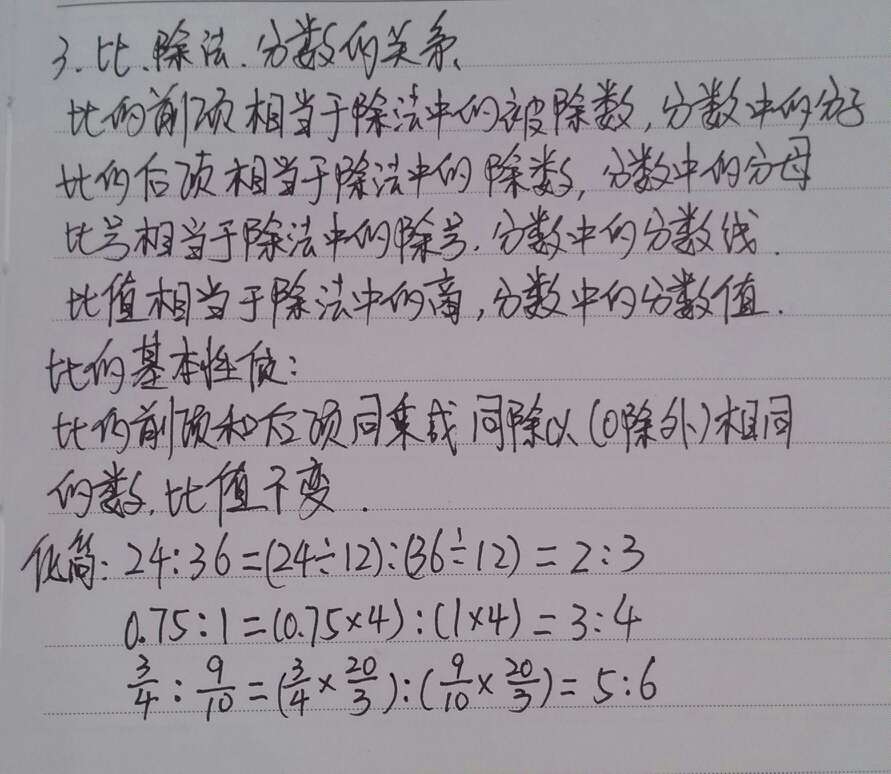 3.比、除法、分数的关系、
比的前项相当于除法中的被除数,分数中的分子
比的后项相当于除法中的除数,分数中的分母
比号相当于除法中的除号.分数中的分数线.
比值相当于除法中的商,分数中的分数值.
比的基本性质:
比的前项和后项同乘或同除以(0除外)相同
的数,比值不变.
化简:24:36=(24÷12):(36÷12)=2:3
0.75:1=(0.75×4):(1×4)=3:4
3/4:9/10=(3/4×20/3):(9/10×20/3)=5:6